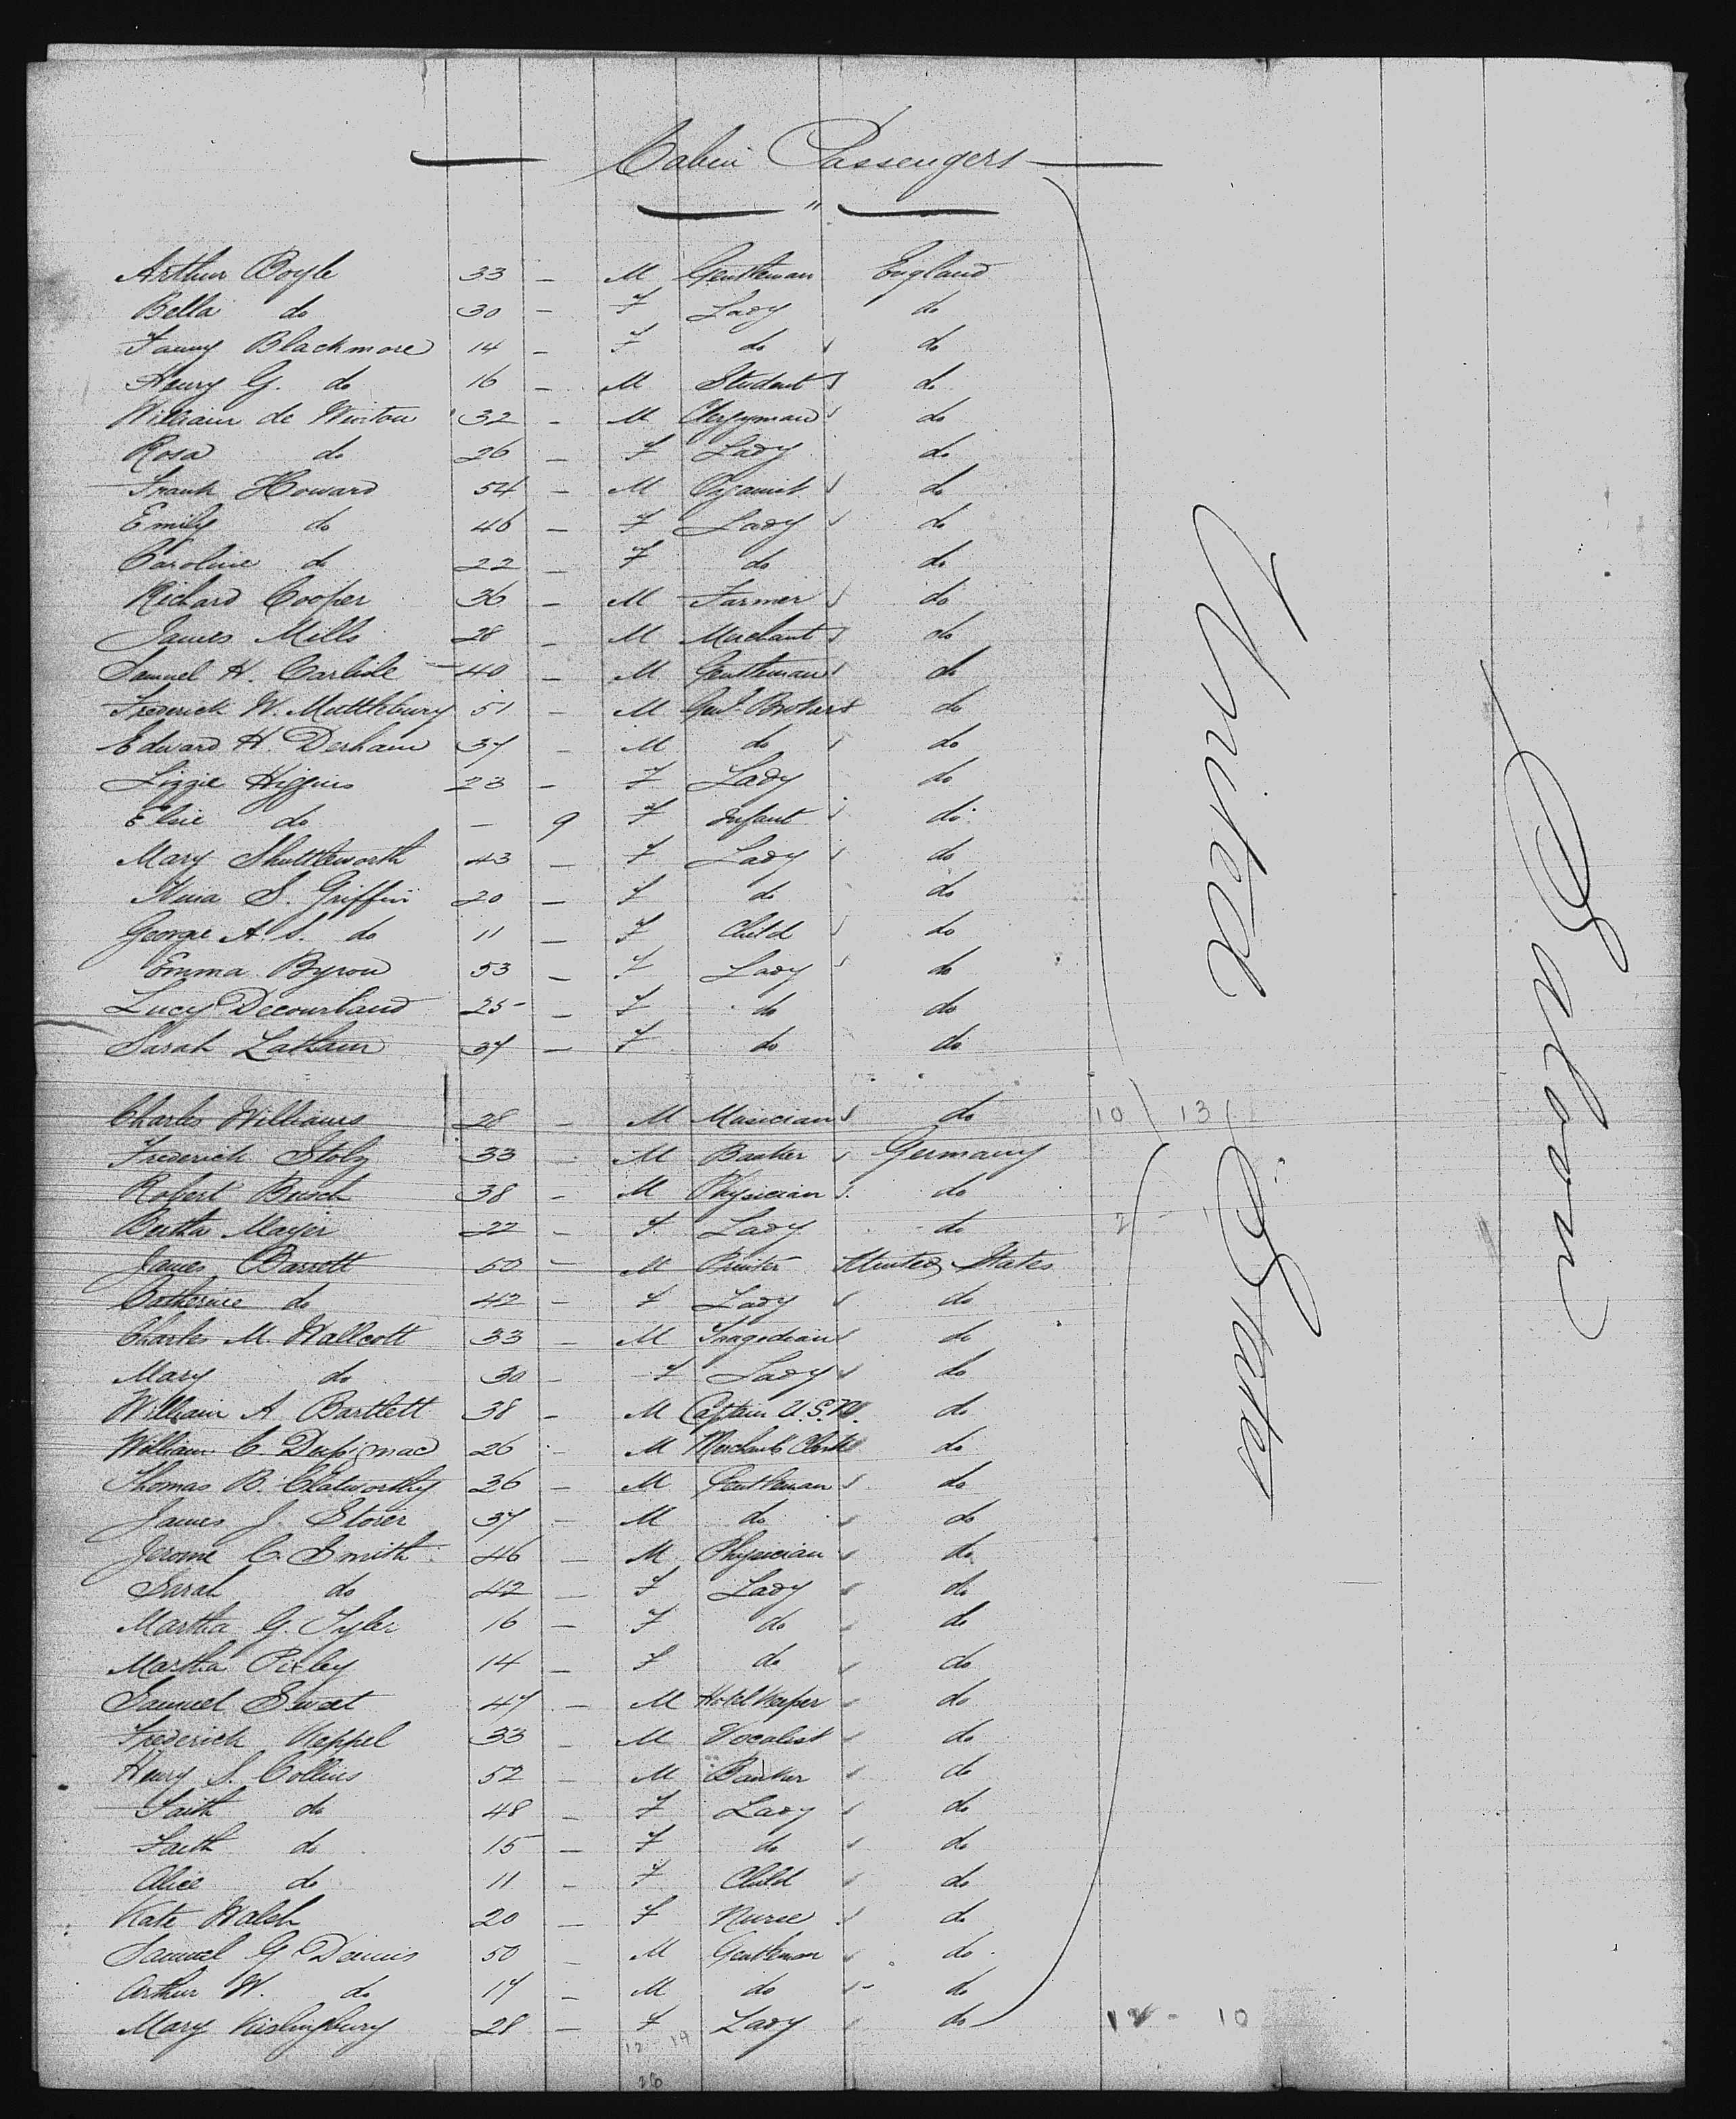 Cabin Passengers
"
Arthur Boyle 33 — M Gentleman England
Bella do 30 — F Lady do
Fanny Blackmore 14 — F do do
Henry G. do 16 — M Student do
William de Winton 32 — M Clergyman do
Rosa do 26 — F Lady do
Frank Howard 54 — M Organist do
Emily do 46 — F Lady do
Caroline do 22 — F do do
Richard Cooper 36 — M Farmer do
James Mills 28 — M Merchant do
Samuel H. Carlisle 40 — M Gentleman do
Frederick W. Mattlebury 51 — M Genl. Broker do
Edward H. Derham 37 — M do do
Lizzie Higgins 23 — F Lady do
Elsie do — 9 F Infant do
Mary Shuttleworth 43 — F Lady do
Nina S. Griffin 20 — F do do
George A. S. do 11 — F Child do
Emma Byron 53 — F Lady do
Lucy Decourland 25 — F do do
Sarah Latham 37 — F do do
Charles Williams 28 — M Musician do 10 13
Frederick Stolz 33 — M Banker Germany
Robert Busch 38 — M Physician do
Bertha Mayer 22 — F. Lady do 2 - 1
James Barrett 50 — M Printer United States
Catherine do 42 — F Lady do
Charles M. Wallcott 33 — M Tragedian do
Mary do 30 — F Lady do
William A. Bartlett 38 — M Captain U.S.N. do
William C. Dupignac 26 — M Merchants Clerk do
Thomas B. Clatworthy 26 — M Gentleman do
James J. Storer 37 — M do do
Jerome C. Smith 46 — M Physician do
Sarah do 42 — F Lady do
Martha G. Tyler 16 — F do do
Martha Pixley 14 — F do do
Samuel Sweet 47 — M Hotel Keeper do
Frederick Keppel 33 — M Vocalist do
Henry S. Collins 52 — M Banker do
Faith do 48 — F Lady do
Faith do 15 — F do do
Alice do 11 — F Child do
Kate Walsh 20 — F Nurse do
Samuel G. Dennis 50 — M Gentleman do
Arthur W. do 17 — M do do
Mary Kislingbury 28 — F Lady do 12 - 10
12 19
26
United States